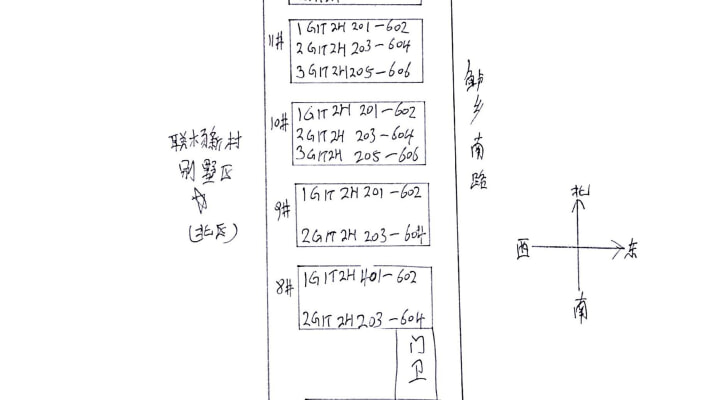 11#
1G1T2H 201-602
2G1T2H 203-604
3G1T2H205-606
10#
1G1T2H 201-602
2G1T2H 203-604
3G1T2H 205-606
9#
1G1T2H201-602
2G1T2H 203-604
8#
1G1T2H401-602
2G1T2H203-604
门
卫
新村
别墅区
(北区)
乡
南
路
北
西
东
南